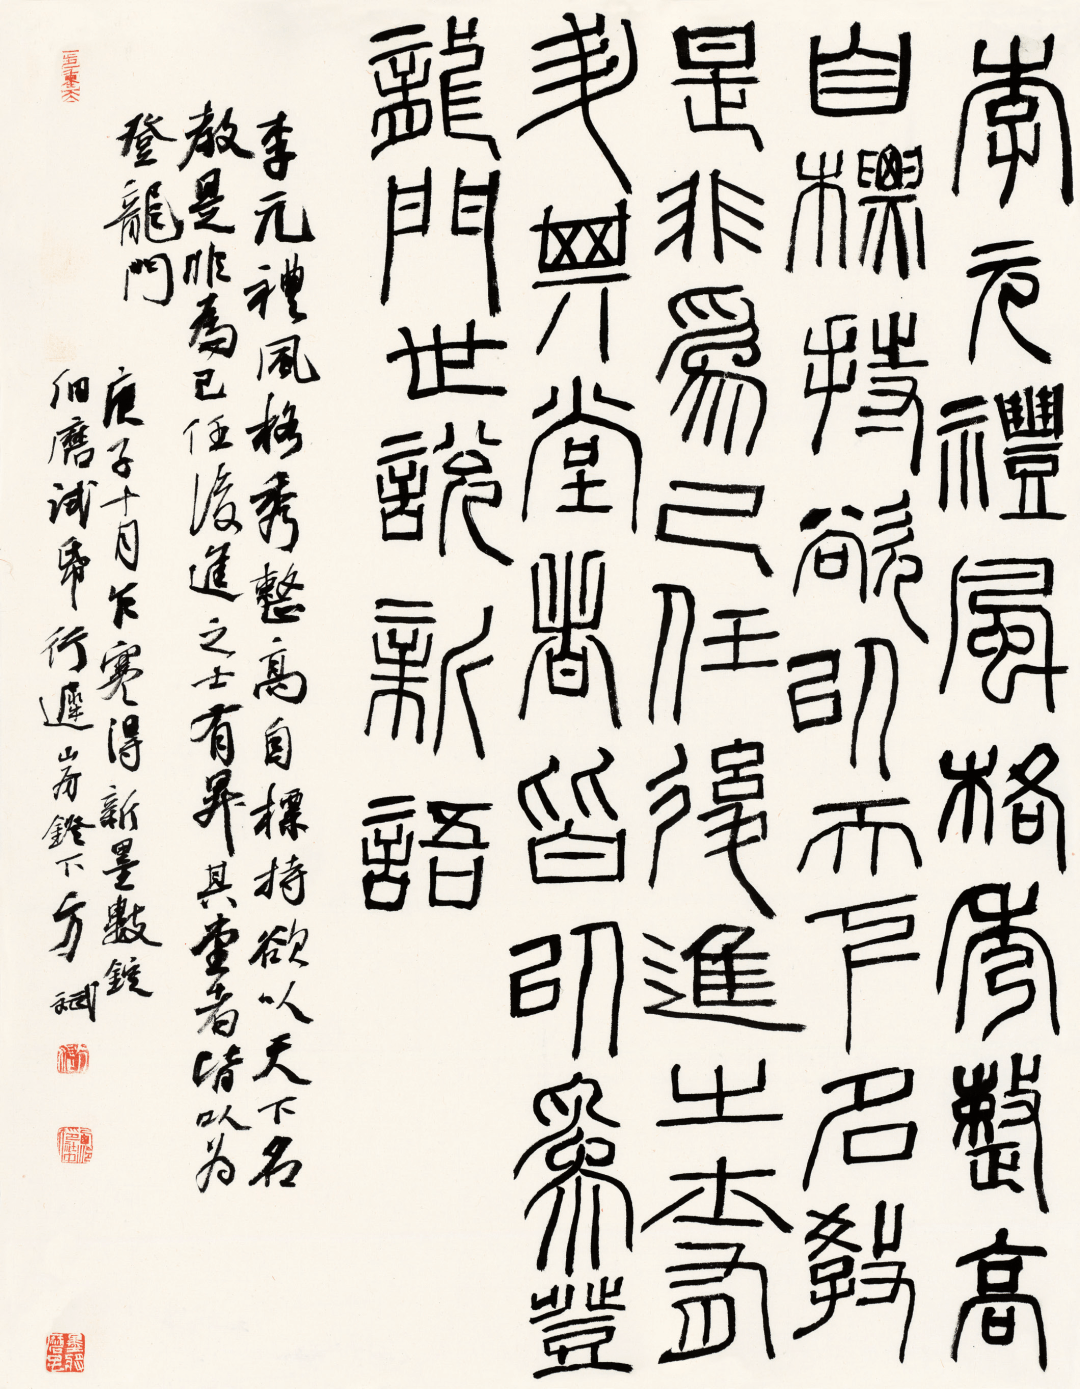 李元禮風格秀整高
自標持欲以天下名教
是非爲己任後進之士有
升其堂者皆以爲登
龍門世說新語
李元禮風格秀整高自標持欲以天下名
教是非為己任後進之士有昇其堂者皆以为
登龍門
庚子十月乍寒得新墨數錠
細磨試帋行遲山房鐙下方斌